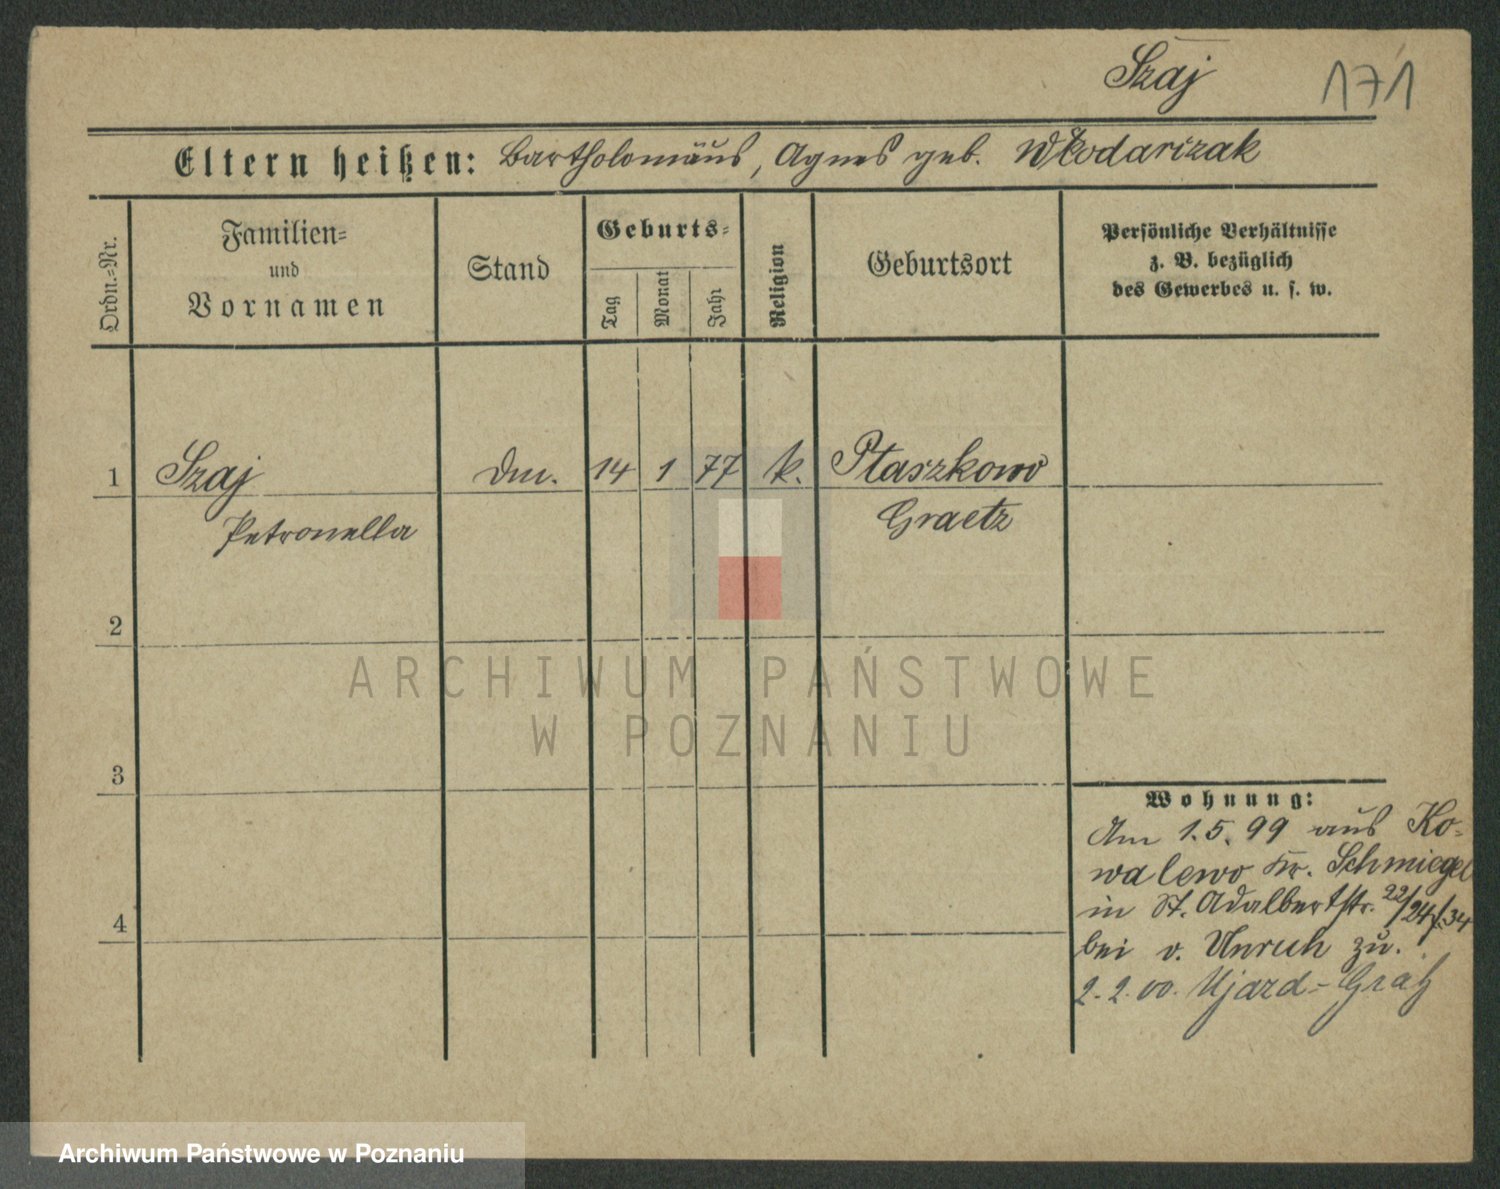 Szaj 171
Eltern heißen: Bartholomäus, Agnes geb. Włodarizak
Ordn.-Nr.
Familien-
und
Vornamen
Stand
Geburts-
Tag
Monat
Jahr
Religion
Geburtsort
Persönliche Verhältnisse
z. B. bezüglich
des Gewerbes u. s. w.
1 Szaj Dm. 14 1 77 k. Ptaszkowo
Petronella Graetz
2
3
4
Wohnung:
Am 1.5.99 aus Ko-
walewo Kr. Schmiegel
in St. Adalbertstr. 22/24/34
bei v. Unruh zu.
2.2.00. Ujazd-Grätz
ARCHIWUM PAŃSTWOWE
W POZNANIU
Archiwum Państwowe w Poznaniu